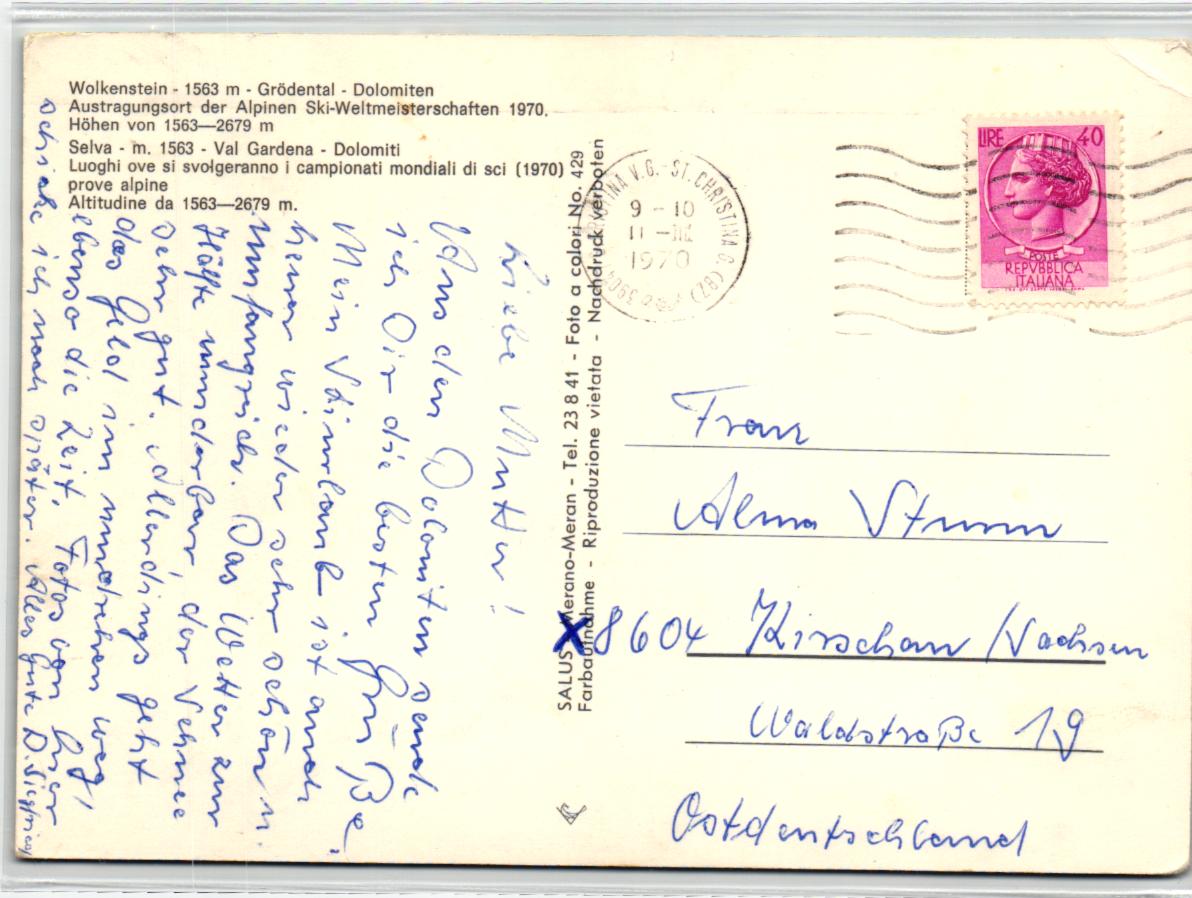 Wolkenstein - 1563 m - Grödental - Dolomiten
Austragungsort der Alpinen Ski-Weltmeisterschaften 1970.
Höhen von 1563—2679 m
Selva - m. 1563 - Val Gardena - Dolomiti
Luoghi ove si svolgeranno i campionati mondiali di sci (1970)
prove alpine
Altitudine da 1563—2679 m.
Liebe Mutter!
Aus den Dolomiten sende
ich Dir die besten Grüße.
Mein Skiurlaub ist auch
heuer wieder sehr schön u.
umfangreich. Das Wetter zur
Hälfte wunderbar, der Schnee
sehr gut. Allerdings geht
das Geld im nu weg,
ebenso die Zeit. Fotos von hier
schicke ich noch später. Alles Gute D. Siegfried
SALUS Merano-Meran - Tel. 23 8 41 - Foto a colori No. 429
Farbaufnahme - Riproduzione vietata - Nachdruck verboten
V.G.-ST. CHRISTINA G. (BZ)
9 - 10
11 - III
1970
LIRE 40
POSTE
REPVBBLICA
ITALIANA
Frau
Alma Sturm
X 8604 Kirschau /Sachsen
Waldstraße 19
Ostdeutschland